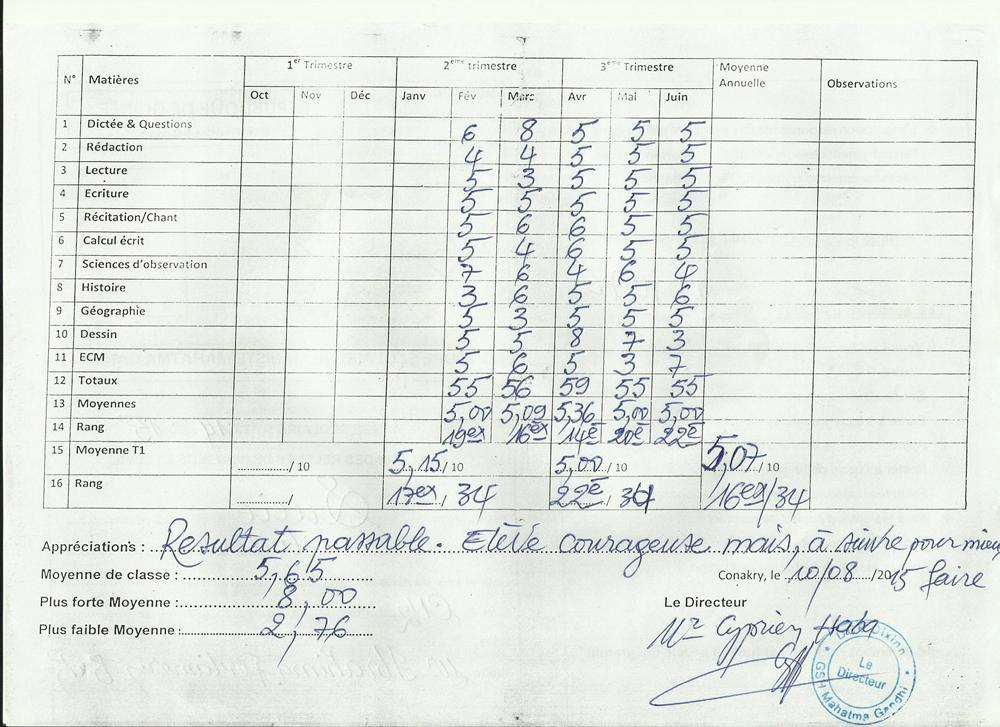 N° Matières 1er Trimestre 2ème trimestre 3ème Trimestre Moyenne Annuelle Observations
Oct Nov Déc Janv Fév Mars Avr Mai Juin
1 Dictée & Questions 6 8 5 5 5
2 Rédaction 4 4 5 5 5
3 Lecture 5 3 5 5 5
4 Ecriture 5 5 5 5 5
5 Récitation/Chant 5 6 6 5 5
6 Calcul écrit 5 4 6 5 5
7 Sciences d'observation 7 6 4 6 4
8 Histoire 3 6 5 5 6
9 Géographie 5 3 5 5 5
10 Dessin 5 5 8 7 3
11 ECM 5 6 5 3 7
12 Totaux 55 56 59 55 55
13 Moyennes 5,00 5,09 5,36 5,00 5,00
14 Rang 19ex 16ex 14è 20è 22è
15 Moyenne T1 ............../ 10 5,15/ 10 5,00/ 10 5,07/ 10
16 Rang ............../ 17ex/ 34 22è/ 34 16ex/34
Appréciations : Resultat passable. Elève courageuse mais, à suivre pour mieux
faire
Moyenne de classe : 5,65
Conakry, le 10/08/2015
Plus forte Moyenne : 8,00
Le Directeur
Plus faible Moyenne : 2,76
Mr Cyprien Haba
Le Directeur
GSH Mahatma Gandhi